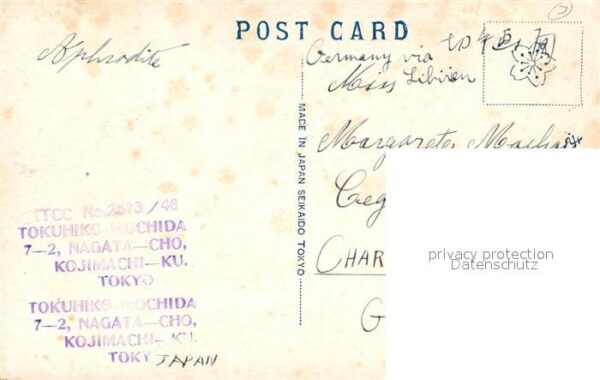 POST CARD
Aphrodite
Germany via
Miss Libiren
Margarete
CHAR
G
MADE IN JAPAN SEIKAIDO TOKYO
ITCC No.2613/46
TOKUHIKO MOCHIDA
7-2, NAGATA-CHO,
KOJIMACHI-KU.
TOKYO
TOKUHIKO MOCHIDA
7-2, NAGATA-CHO,
KOJIMACHI-KU.
TOKY JAPAN
privacy protection
Datenschutz